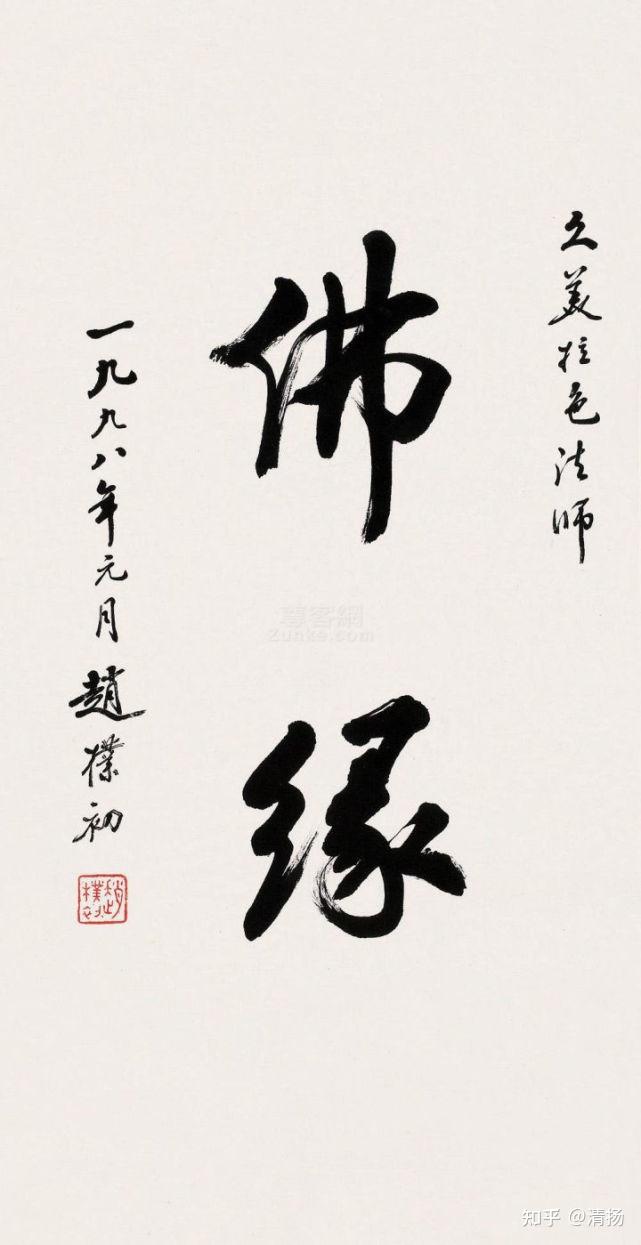 久美拉色法师
佛缘
一九九八年元月趙樸初
尊客網
Zunke.com
知乎 @清扬